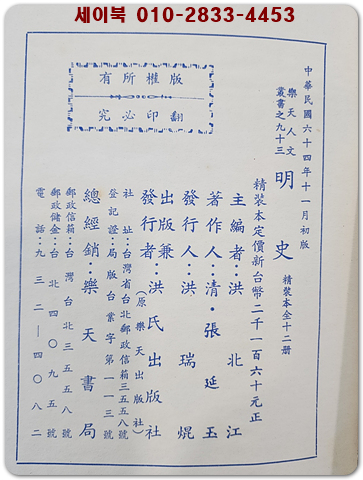 세이북 010-2833-4453
版權所有
翻印必究
中華民國六十四年十一月初版
樂天人文
叢書之九十三
明史
精裝本全十二册
精裝本定價新台幣二千一百六十元正
主編者：洪北江
著作人：清・張延玉
發行人：洪瑞焜
出版兼
發行者：洪氏出版社
（原樂天出版社）
社址：台灣省台北郵政信箱三五五八號
登記證：局版台業字第一一三號
總經銷：樂天書局
郵政信箱：台灣台北三五五八號
郵政儲金：台北四〇九五號
電話：九三二—四〇八二